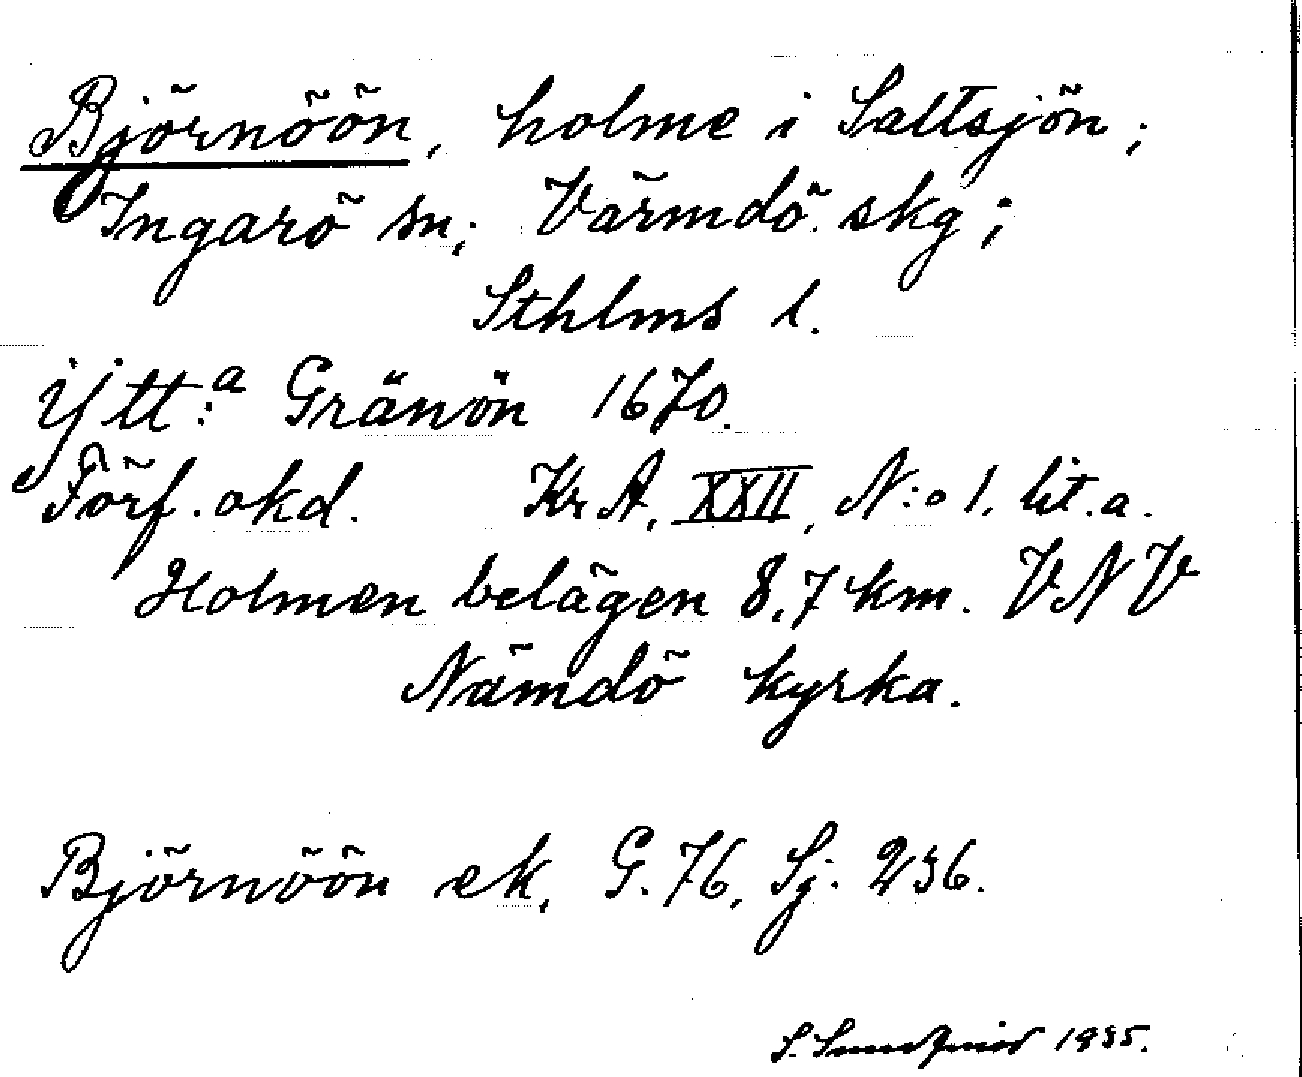 Björnöön, holme i Saltsjön;
Ingarö sn; Värmdö skg;
Sthlms l.
Ytt:a Gränön 1670.
Förf. okd. Kr A. XXII, N:o 1. lit. a.
Holmen belägen 8,7 km. VNV
Nämdö kyrka.
Björnöön ek, G. 76, Sj. 236.
S. 1935.